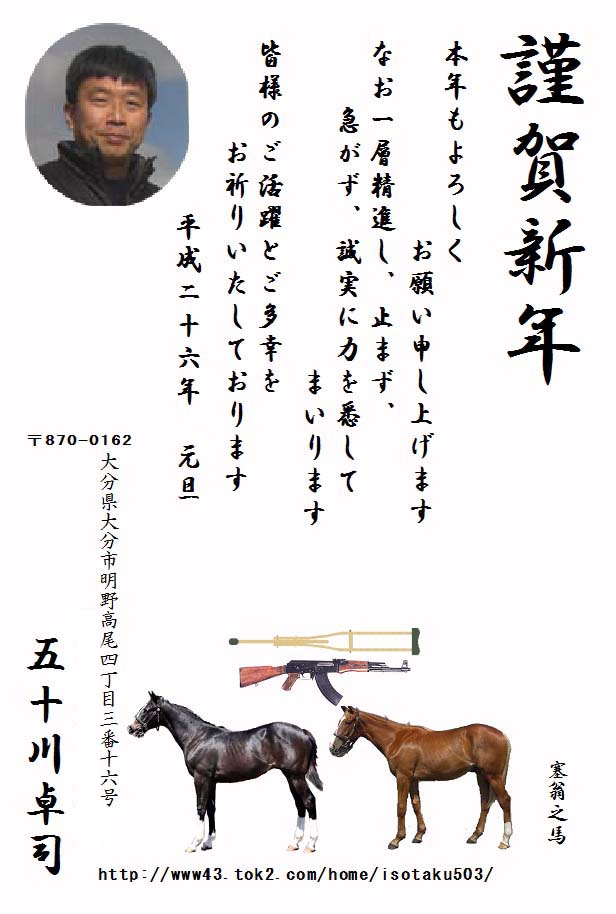 謹賀新年
本年もよろしく
お願い申し上げます
なお一層精進し、止まず、
急がず、誠実に力を悉して
まいります
皆様のご活躍とご多幸を
お祈りいたしております
平成二十六年 元旦
〒870-0162
大分県大分市明野高尾四丁目三番十六号
五十川卓司
塞翁之馬
http://www43.tok2.com/home/isotaku503/